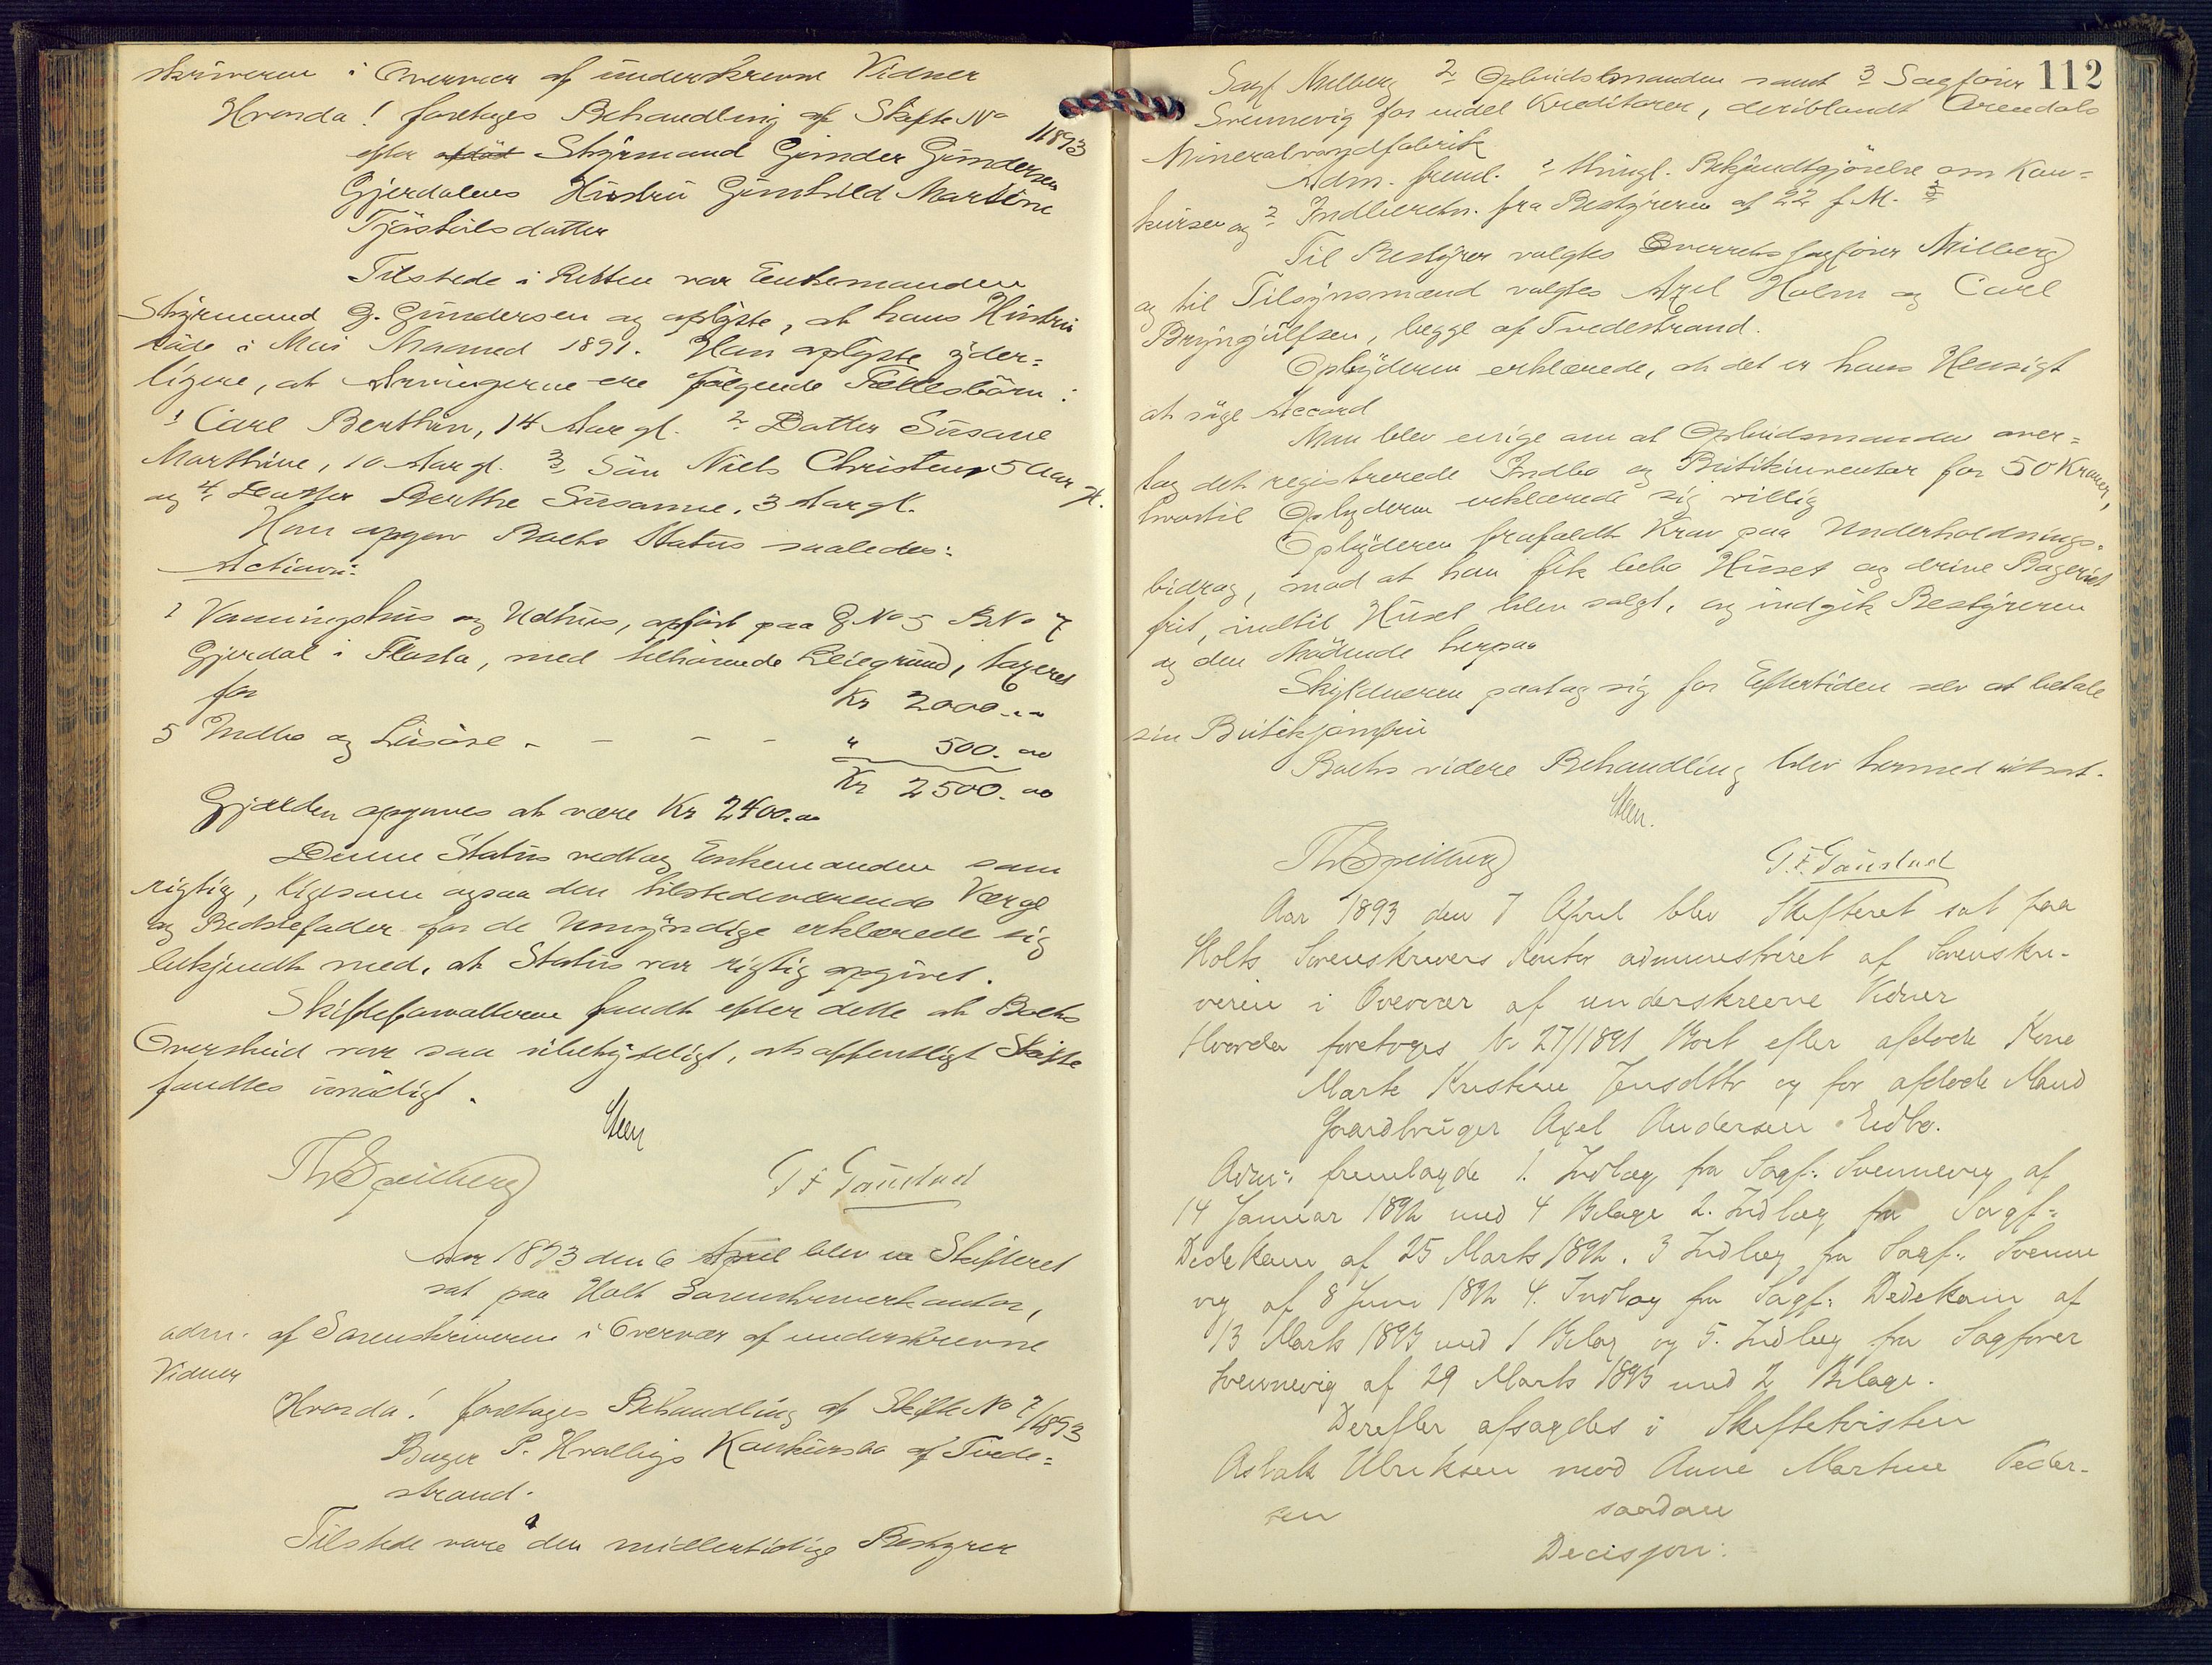 skriveren i Overvær af underskrevne Vidner
Hvorda! foretoges Behandling af Skifte No 1/1893
efter afdød Styrmand Gunder Gundersen
Gjerdalens Hustru Gunhild Martine
Tjøstulsdatter
Tilstede i Retten var Enkemanden
Styrmand G. Gundersen og oplyste, at hans Hustru
døde i Mai Maaned 1891. Han oplyste yder-
ligere, at Arvingerne ere følgende Fællesbørn:
1 Carl Berthin, 14 Aar gl. 2 Datter Susane
Marthine, 10 Aar gl. 3, Søn Niels Christen, 5 Aar gl.
og 4, Datter Berthe Susanne, 3 Aar gl.
Han opgav Boets Status saaledes:
Activa:
1 Vaaningshus og Udhus, opført paa G No 5 B No 7
Gjerdal i Flosta, med tilhørende Leiegrund, taxeret
for Kr 2000.00
5 Indbo og Løsøre - - - - " 500.00
Kr 2500.00
Gjælden opgaves at være Kr 2400.00
Denne Status vedtog Enkemanden som
rigtig, ligesom ogsaa den tilstedeværende Værge
og Bedstefader for de Umyndige erklærede sig
bekjendt med, at Status var rigtig opgivet.
Skifteforvalteren fandt efter dette at Boets
Overskud var saa ubetydeligt, at offentligt Skifte
fandtes unødigt.
Steen
Th Speilberg G F Gaustad
Aar 1893 den 6 April blev Skifteret
sat paa Holt Sorenskriverkontor,
adm. af Sorenskriveren i Overvær af underskrevne
Vidner
Hvorda! foretoges Behandling af Skifte No 7/1893
Bager P. Hvalligs Konkursbo af Tvede-
strand.
Tilstede vare 1 den midlertidige Bestyrer
112
Sagf Milberg 2 Opbudsmanden samt 3 Sagfører
Svennevig for endel Kreditorer, deriblandt Arendals
Mineralvandfabrik
Adm. freml. 1 thingl. Bekjendtgjørelse om Kon-
kursen og 2 Indberetn. fra Bestyreren af 22 f. M.
Til Bestyrer valgtes Overretssagfører Milberg
og til Tilsynsmænd valgtes Axel Holm og Carl
Bryngulfsen, begge af Tvedestrand.
Opbyderen erklærede, at det er hans Hensigt
at søge Accord
Man blev enige om at Opbudsmanden over-
tog det registrerede Indbo og Butikinventar for 50 Kroner,
hvortil Opbyderen erklærede sig villig
Opbyderen frafaldt Krav paa Underholdnings-
bidrag, mod at han fik bebo Huset og drive Bageriet
frit, indtil Huset blev solgt, og indgik Bestyreren
og den Mødende herpaa
Skyldneren paatog sig for Eftertiden selv at betale
sin Butikjomfru
Boets videre Behandling blev hermed udsat.
Steen.
Th Speilberg G. F. Gaustad
Aar 1893 den 7 April blev Skifteret sat paa
Holts Sorenskrivers Kontor administreret af Sorenskri-
veren i Overvær af underskrevne Vidner
Hvorda foretoges No 27/1891 Boet efter afdøde Kone
Marte Kristine Jensdttr og for afdøde Mand
Gaardbruger Axel Andersen Eidbo.
Adm: fremlagde 1. Indlæg fra Sagf: Svennevig af
14 Januar 1892 med 4 Bilage 2. Indlæg fra Sagf:
Dedekam af 25 Marts 1892. 3 Indlæg fra Sagf: Svenne
vig af 8 Juni 1892 4. Indlæg fra Sagf: Dedekam af
13 Marts 1893 med 1 Bilag og 5. Indlæg fra Sagfører
Svennevig af 29 Marts 1893 med 2 Bilage.
Derefter afsagdes i Skiftetvisten
Aslak Ulriksen mod Anne Martine Peder-
sen saadan
Decisjon: